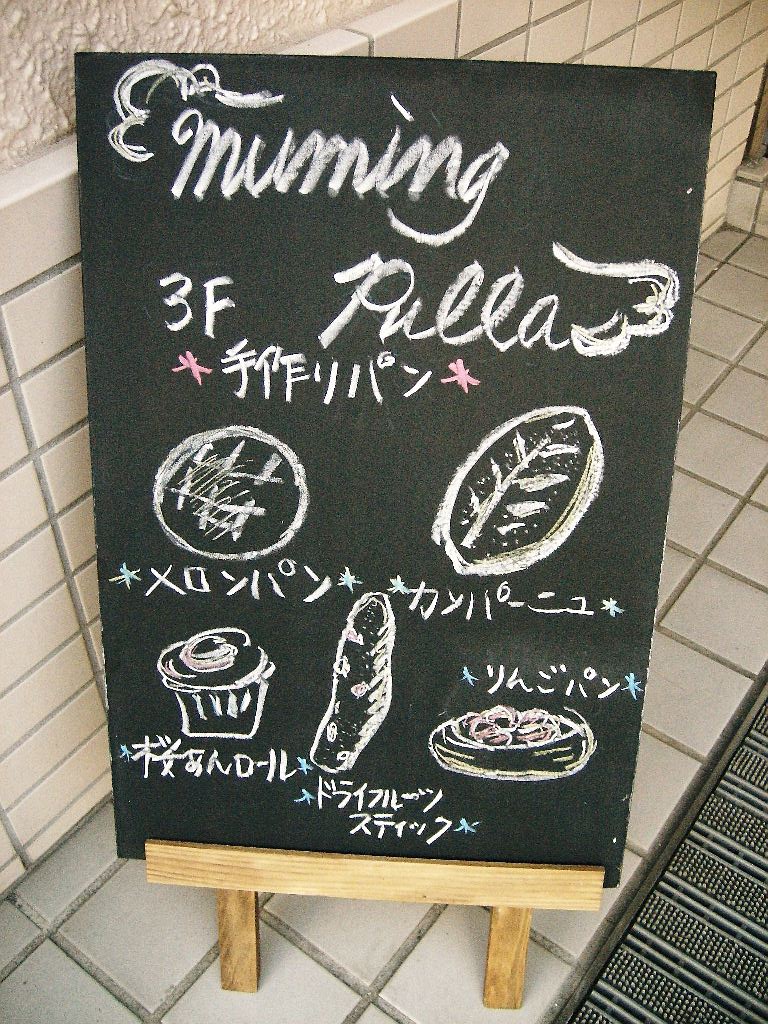 muming
Pulla
3F
手作りパン
メロンパン
カンパーニュ
りんごパン
桜あんロール
ドライフルーツ
スティック